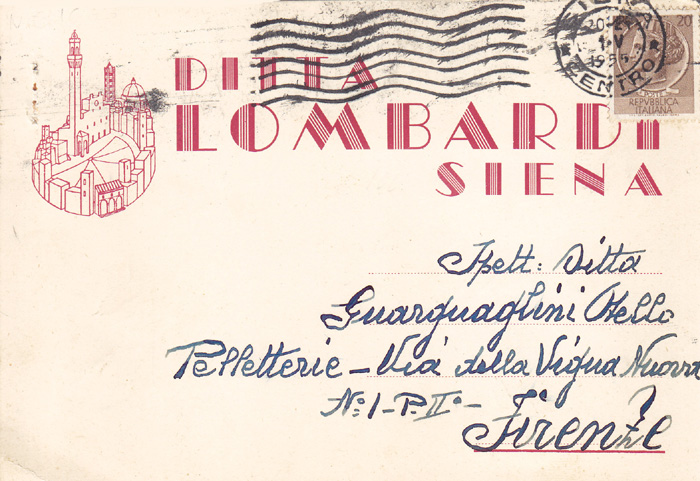 DITTA
LOMBARDI
SIENA
SIENA
CENTRO
20
REPVBBLICA
ITALIANA
Spett: Ditta
Guarguaglini Otello
Pelletterie - Via della Vigna Nuova
No: 1 - P. IIo -
Firenze